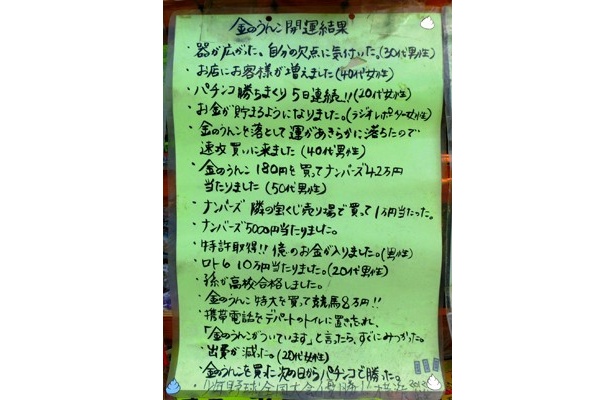 金のうんこ開運結果
・器が広がった、自分の欠点に気付いた。(30代男性)
・お店にお客様が増えました(40代女性)
・パチンコ勝ちまくり5日連続!!(20代女性)
・お金が貯まるようになりました。(ラジオレポーター女性)
・金のうんこを落として運があきらかに落ちたので
速攻買いに来ました(40代男性)
・金のうんこ180円を買ってナンバーズ42万円
当たりました(50代男性)
・ナンバーズ 隣の宝くじ売り場で買って1万円当たった。
・ナンバーズ5000円当たりました。
・特許取得!!億のお金が入りました。(男性)
・ロト6 10万円当たりました。(20代男性)
・孫が高校合格しました。
・金のうんこ特大を買って競馬8万円!!
・携帯電話をデパートのトイレに置き忘れ、
「金のうんこがついています」と言ったら、すぐにみつかった。
・出費が減った。(20代女性)
・金のうんこを買った次の日からパチンコで勝った。
野球全国大会優勝